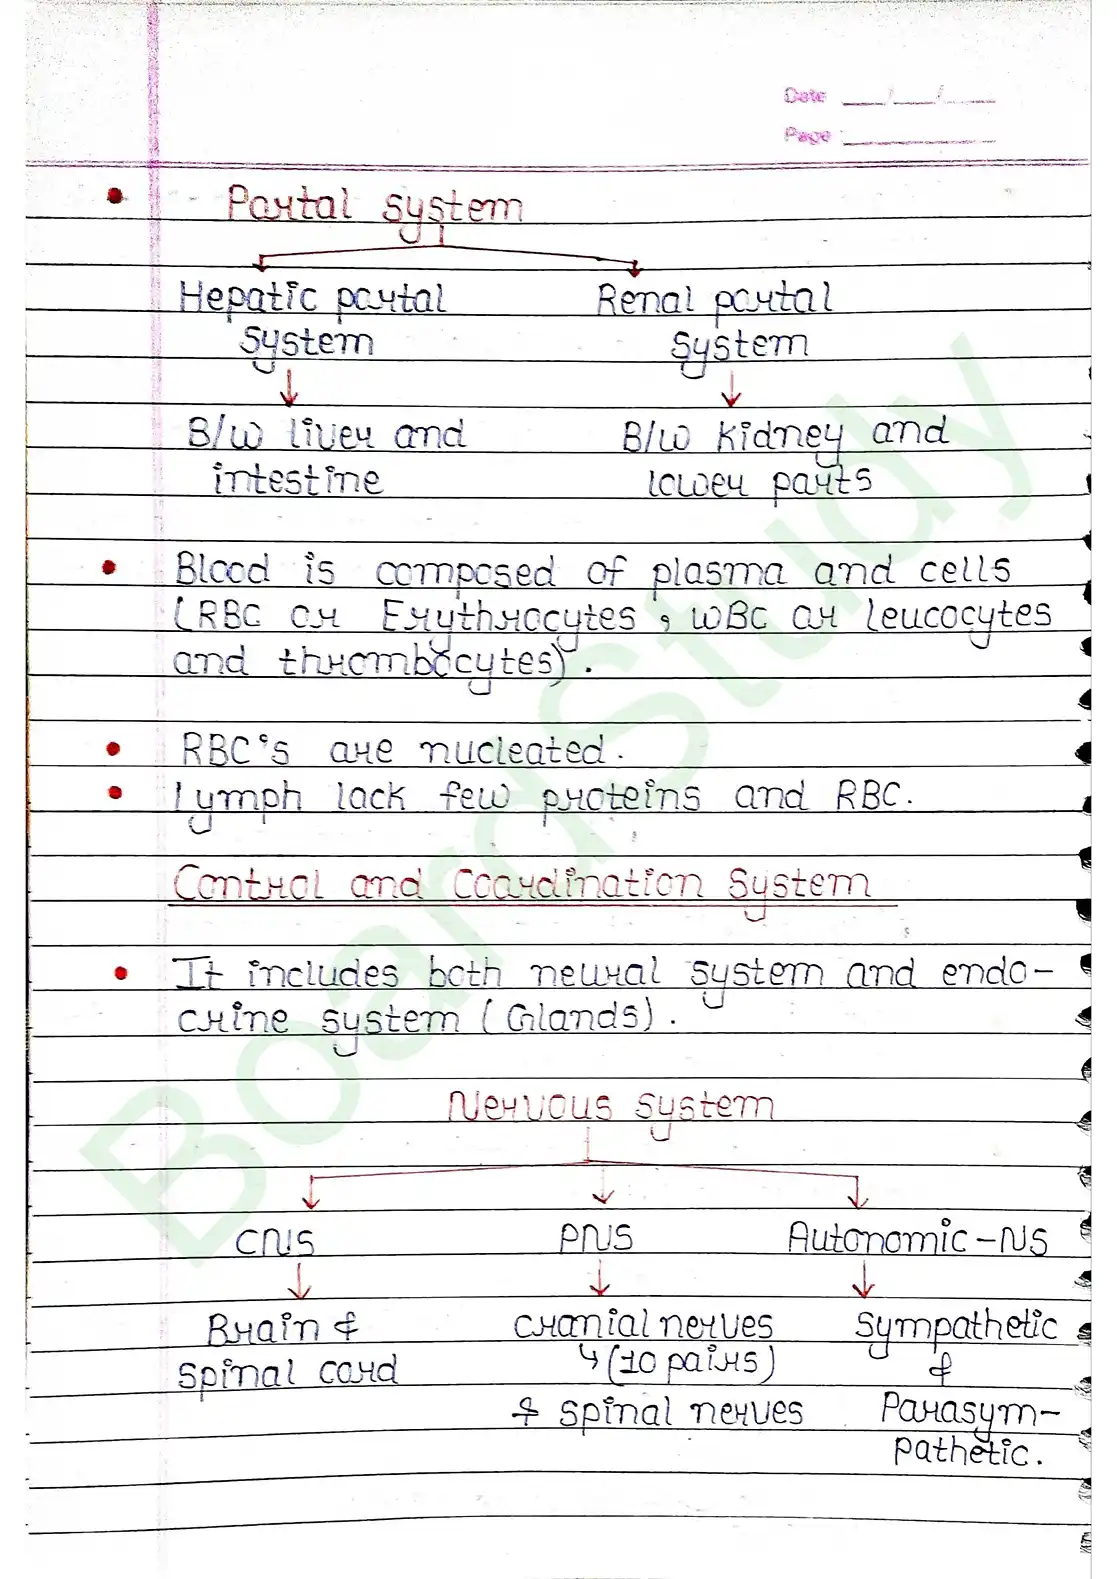 Date __/__/__
Page :
• Portal system
Hepatic portal Renal portal
system system
B/W liver and B/W Kidney and
intestine lower parts
• Blood is composed of plasma and cells
(RBC or Erythrocytes, WBC or leucocytes
and thrombocytes).
• RBC's are nucleated.
• lymph lack few proteins and RBC.
Control and Coordination System
• It includes both neural system and endo-
crine system (Glands).
Nervous system
CNS PNS Autonomic-NS
Brain & cranial nerves Sympathetic
spinal cord ↳(10 pairs) &
& spinal nerves Parasym-
pathetic.
BoardStudy